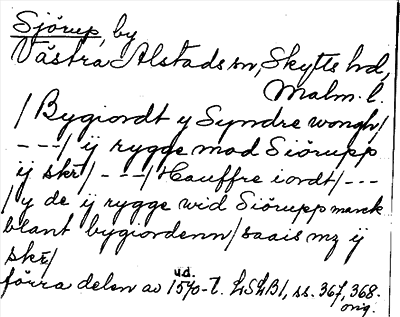 Sjörup, by
Västra Alstads sn, Skytts hd,
Malm. l.
/ Bygiordt y Syndre wongh/
---/ ij rygge mod Siörupp
ij skr/ ---/ Hauffre iordt/ ---
/ y de ij rygge wid Siörupp marck
blant bygiordenn/ saais mz ij
skr/
förra delen av 1570-t. LSLB1, ss. 367, 368.
u.d. orig.